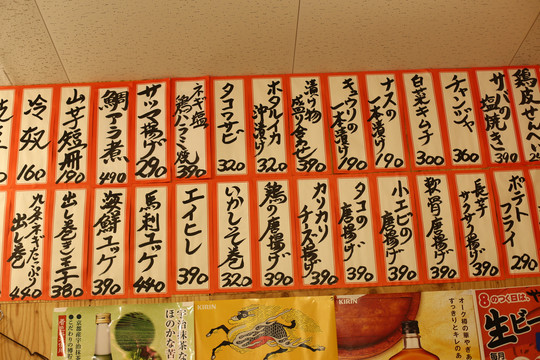 鶏皮せんべい
サバの
塩焼き
390
チャンジャ
360
白菜キムチ
300
ナスの
一本漬け
190
キュウリの
一本漬け
190
漬け物
盛り合わせ
390
ホタルイカ
沖漬け
320
タコワサビ
320
ネギ塩
鶏ハラミ焼
390
サツマ揚げ
290
鯛アラ煮
490
山芋短冊
190
冷奴
160
ポテト
フライ
290
長芋
サクサク揚げ
390
軟骨唐揚げ
390
小エビの
唐揚げ
390
タコの
唐揚げ
350
カリカリ
チーズ揚げ
390
鶏の唐揚げ
390
いかしそ巻
320
エイヒレ
390
馬刺ユッケ
440
海鮮ユッケ
390
出し巻き玉子
380
九条ネギたっぷり
出し巻
440
KIRIN
KIRIN
宇治抹茶な
ほのかな苦
●京都産宇治抹茶
●こだわりの
オーク樽の華やぎあ
すっきりとキレの
8のつく日は、
生ビー
毎月